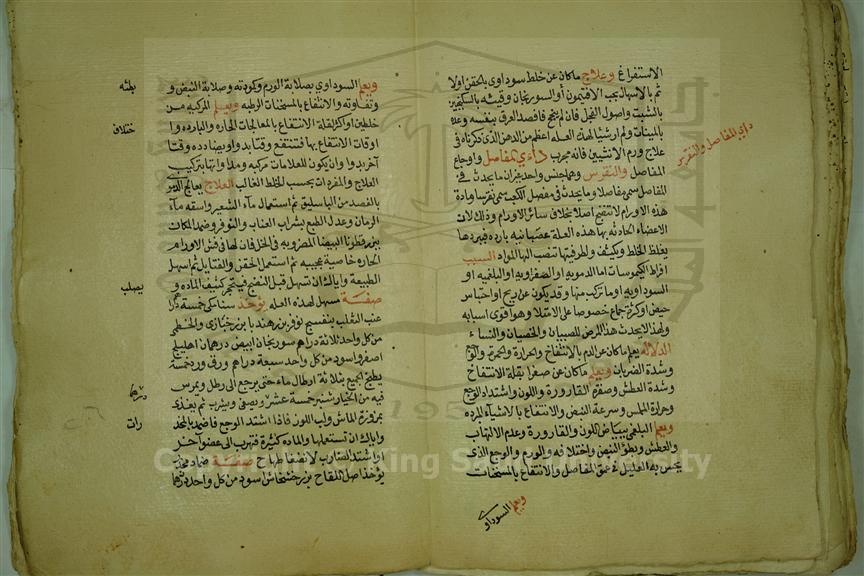 الاستفراغ وعلاج ماكان عن خلط سوداوي بالحقن اولا
ثم بالاسهال بحب الافتيمون أو السورنجان وقيئه بالسكنجبين
بالشبت واصول الفجل فان لم ينجح فافصد العرق بنفسه وعلاج
بالمبينات ولم ار شيا لهذه العله اعظم من الدهن الذي ذكرناه في
علاج ورم الانثيين فانه مجرب دآءي المفاصل واوجاع
المفاصل والنقرس وهما جنس واحد غيران ما يحدث في
المفاصل سمي مفاصلا وما يحدث في مفصل الكعب سمي نقرسا ومادة
هذه الاورام لا تنفتح اصلا بخلاف سائر الاورام وذلك لان
الاعضاء الحادثه بها هذه العله عصبانيه بارده فيبردها
يغلظ الخلط ويكثف ولطرفيتها تنصب اليها المواد السبب
افراط الكيموسات اما الدمويه او الصفراويه او البلغميه او
السوداويه او ما تركب منها وقد يكون عن ريح او احتباس
حيض او كثرة جماع خصوصا على الامتلا وهو اقوى اسبابه
ولهذا لا يحدث هذا المرض للصبيان والخصيان والنساء
الدلالة يعلم ماكان عن الدم بالانتفاخ والحرارة والحمرة والوجع
وشدة الضربان ويعلم ماكان عن صفرا بقلة الانتفاخ
وشدة العطش وصفرة القارورة واللون واشتداد الوجع
وحرارة الملمس وسرعة النبض والانتفاع بالاشياء المبرده
ويعلم البلغمي ببياض اللون والقارورة وعدم الالتهاب
والعطش وبطؤ النبض واختلافه والورم والوجع الذي
يحس به العليل في عمق المفاصل والانتفاع بالمسخنات
ويعلم السوداوي
دآءي المفاصل والنقرس
ويعلم السوداوي بصلابة الورم وكمودته وصلابة النبض و
بطئه
وتفاوته والانتفاع بالمسخنات الرطبه ويعلم المركبه من
خلطين او اكثر لقلة الانتفاع بالمعالجات الحاره والبارده وا
ختلاف
اوقات الانتفاع بها فتنتفع وقتا بدوا ويضادده وقتا
آخر بدوا وان يكون للعلامات مركبه ومداواتها بتركيب
العلاج والمفردات بحسب الخلط الغالب العلاج يعالج الدموي
بالفصد من الباسليق ثم استعمال مآء الشعير واسقه مآء
الرمان وعدل الطبع بشراب العناب والنوفر وضمد المكان
ببزر قطونا البيضا المضروبه في الخل فان لها في فش الاورام
الحاره خاصية عجيبه ثم استعمل الحقن والفتايل ثم اسهل
الطبيعة واياك ان تسهل قبل النضج فيتحجر كثيف الماده و
يصلب
صفة مسهل لهذه العله يؤخذ سنا مكي خمسة درا
عنب الثعلب بنفسج نوفر بزر هندبا بزر خبازي والخطمي
من كل واحد ثلاثة دراهم سورنجان ابيض درهمان اهليلج
اصفر واسود من كل واحد سبعة دراهم ورق ورد خمسة
يطبخ الجميع بثلاثة ارطال ماء حتى يرجع الى رطل ويمرس
درهما
فيه من الخيار شنبر خمسة عشر ويصفى ويشرب ثم يغذى
بمزورة الماش ولب اللوز فاذا اشتد الوجع فاضمد بالمخد
رات
واياك ان تستعملها والماده كثيرة فتهرب الى عضو آخر
او اشتد الضارب لانضغاطها ح صفة ضماد مخدر
يؤخذ اصل اللفاح بزر خشخاش اسود من كل واحد درهما